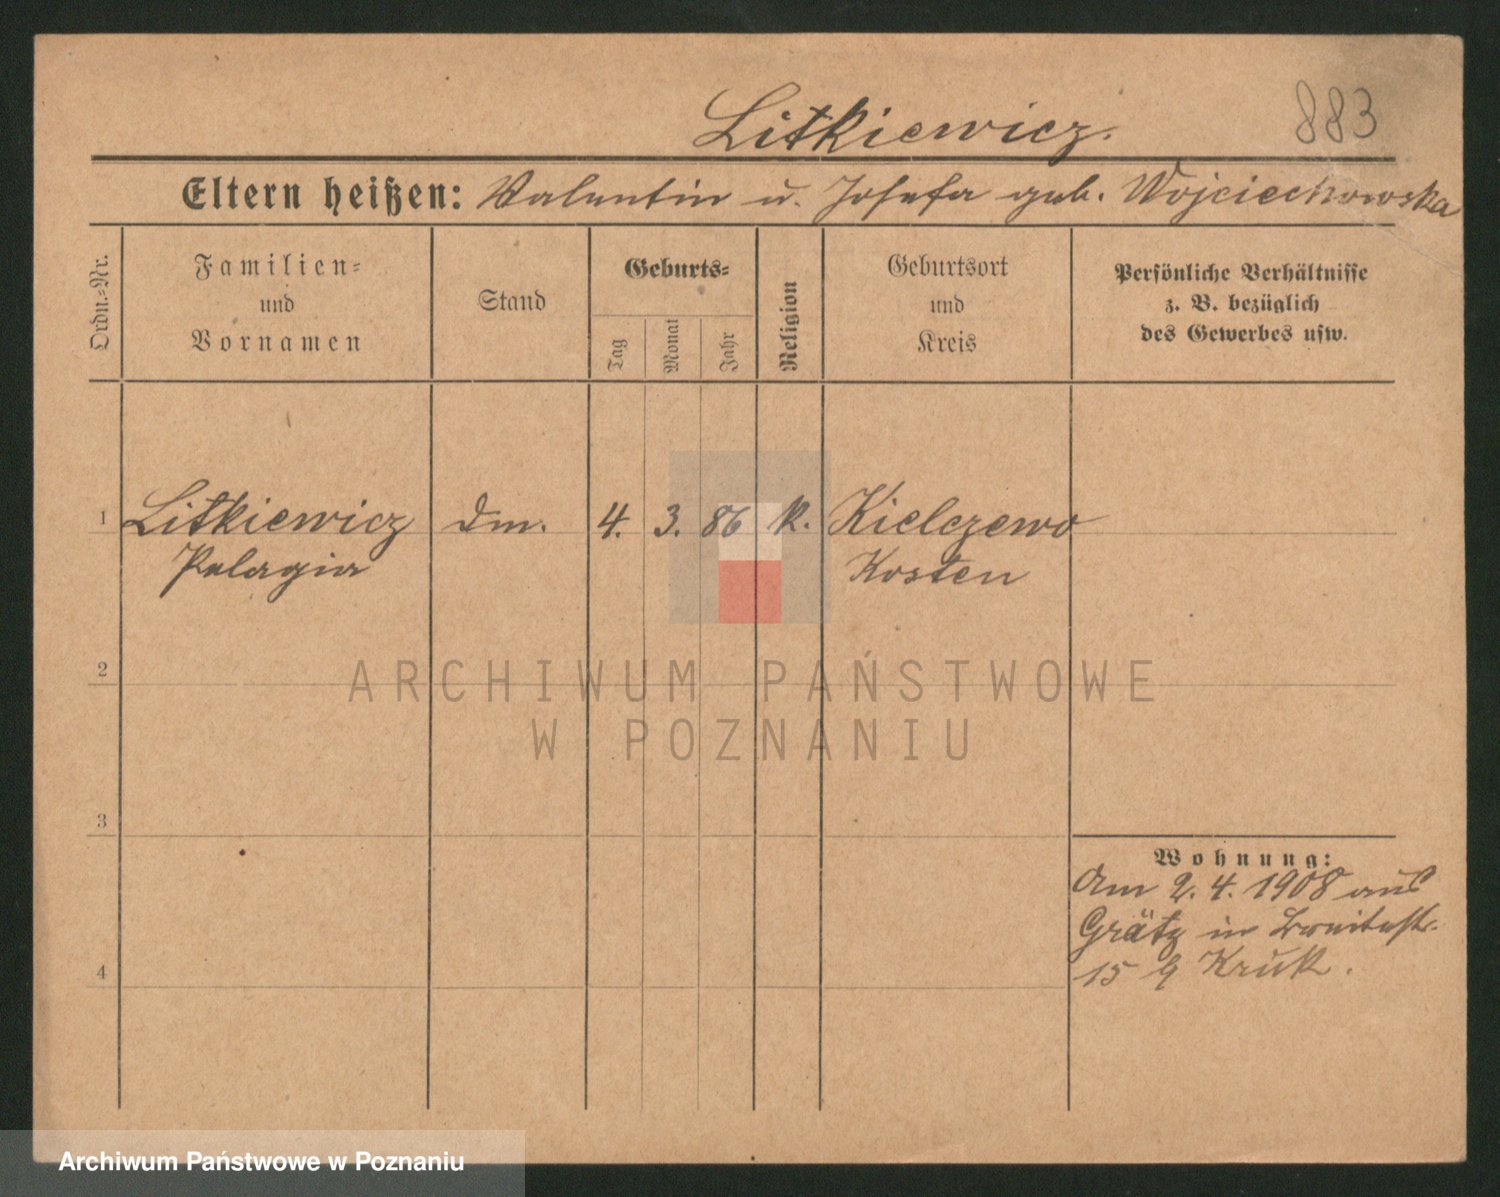 883
Litkiewicz.
Eltern heißen: Valentin u. Josefa geb. Wojciechowska
Ordn.-Nr.
Familien-
und
Vornamen
Stand
Geburts-
Tag
Monat
Jahr
Religion
Geburtsort
und
Kreis
Persönliche Verhältnisse
z. B. bezüglich
des Gewerbes usw.
1 Litkiewicz Dm. 4. 3. 86 k. Kielczewo
Pelagia Kosten
2
ARCHIWUM PAŃSTWOWE
W POZNANIU
3
Wohnung:
Am 2. 4. 1908 aus
Grätz in Breitestr.
15 Kruk.
4
Archiwum Państwowe w Poznaniu